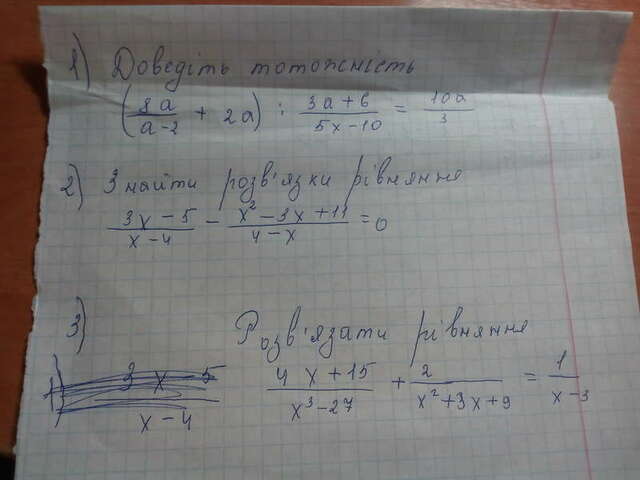 1) Доведіть тотожність
(8a/a-2 + 2a) : 3a+6/5x-10 = 10a/3
2) Знайти розв'язки рівняння
3x-5/x-4 - x²-3x+11/4-x = 0
3) Розв'язати рівняння
3 x 5 / x-4
4x+15/x³-27 + 2/x²+3x+9 = 1/x-3